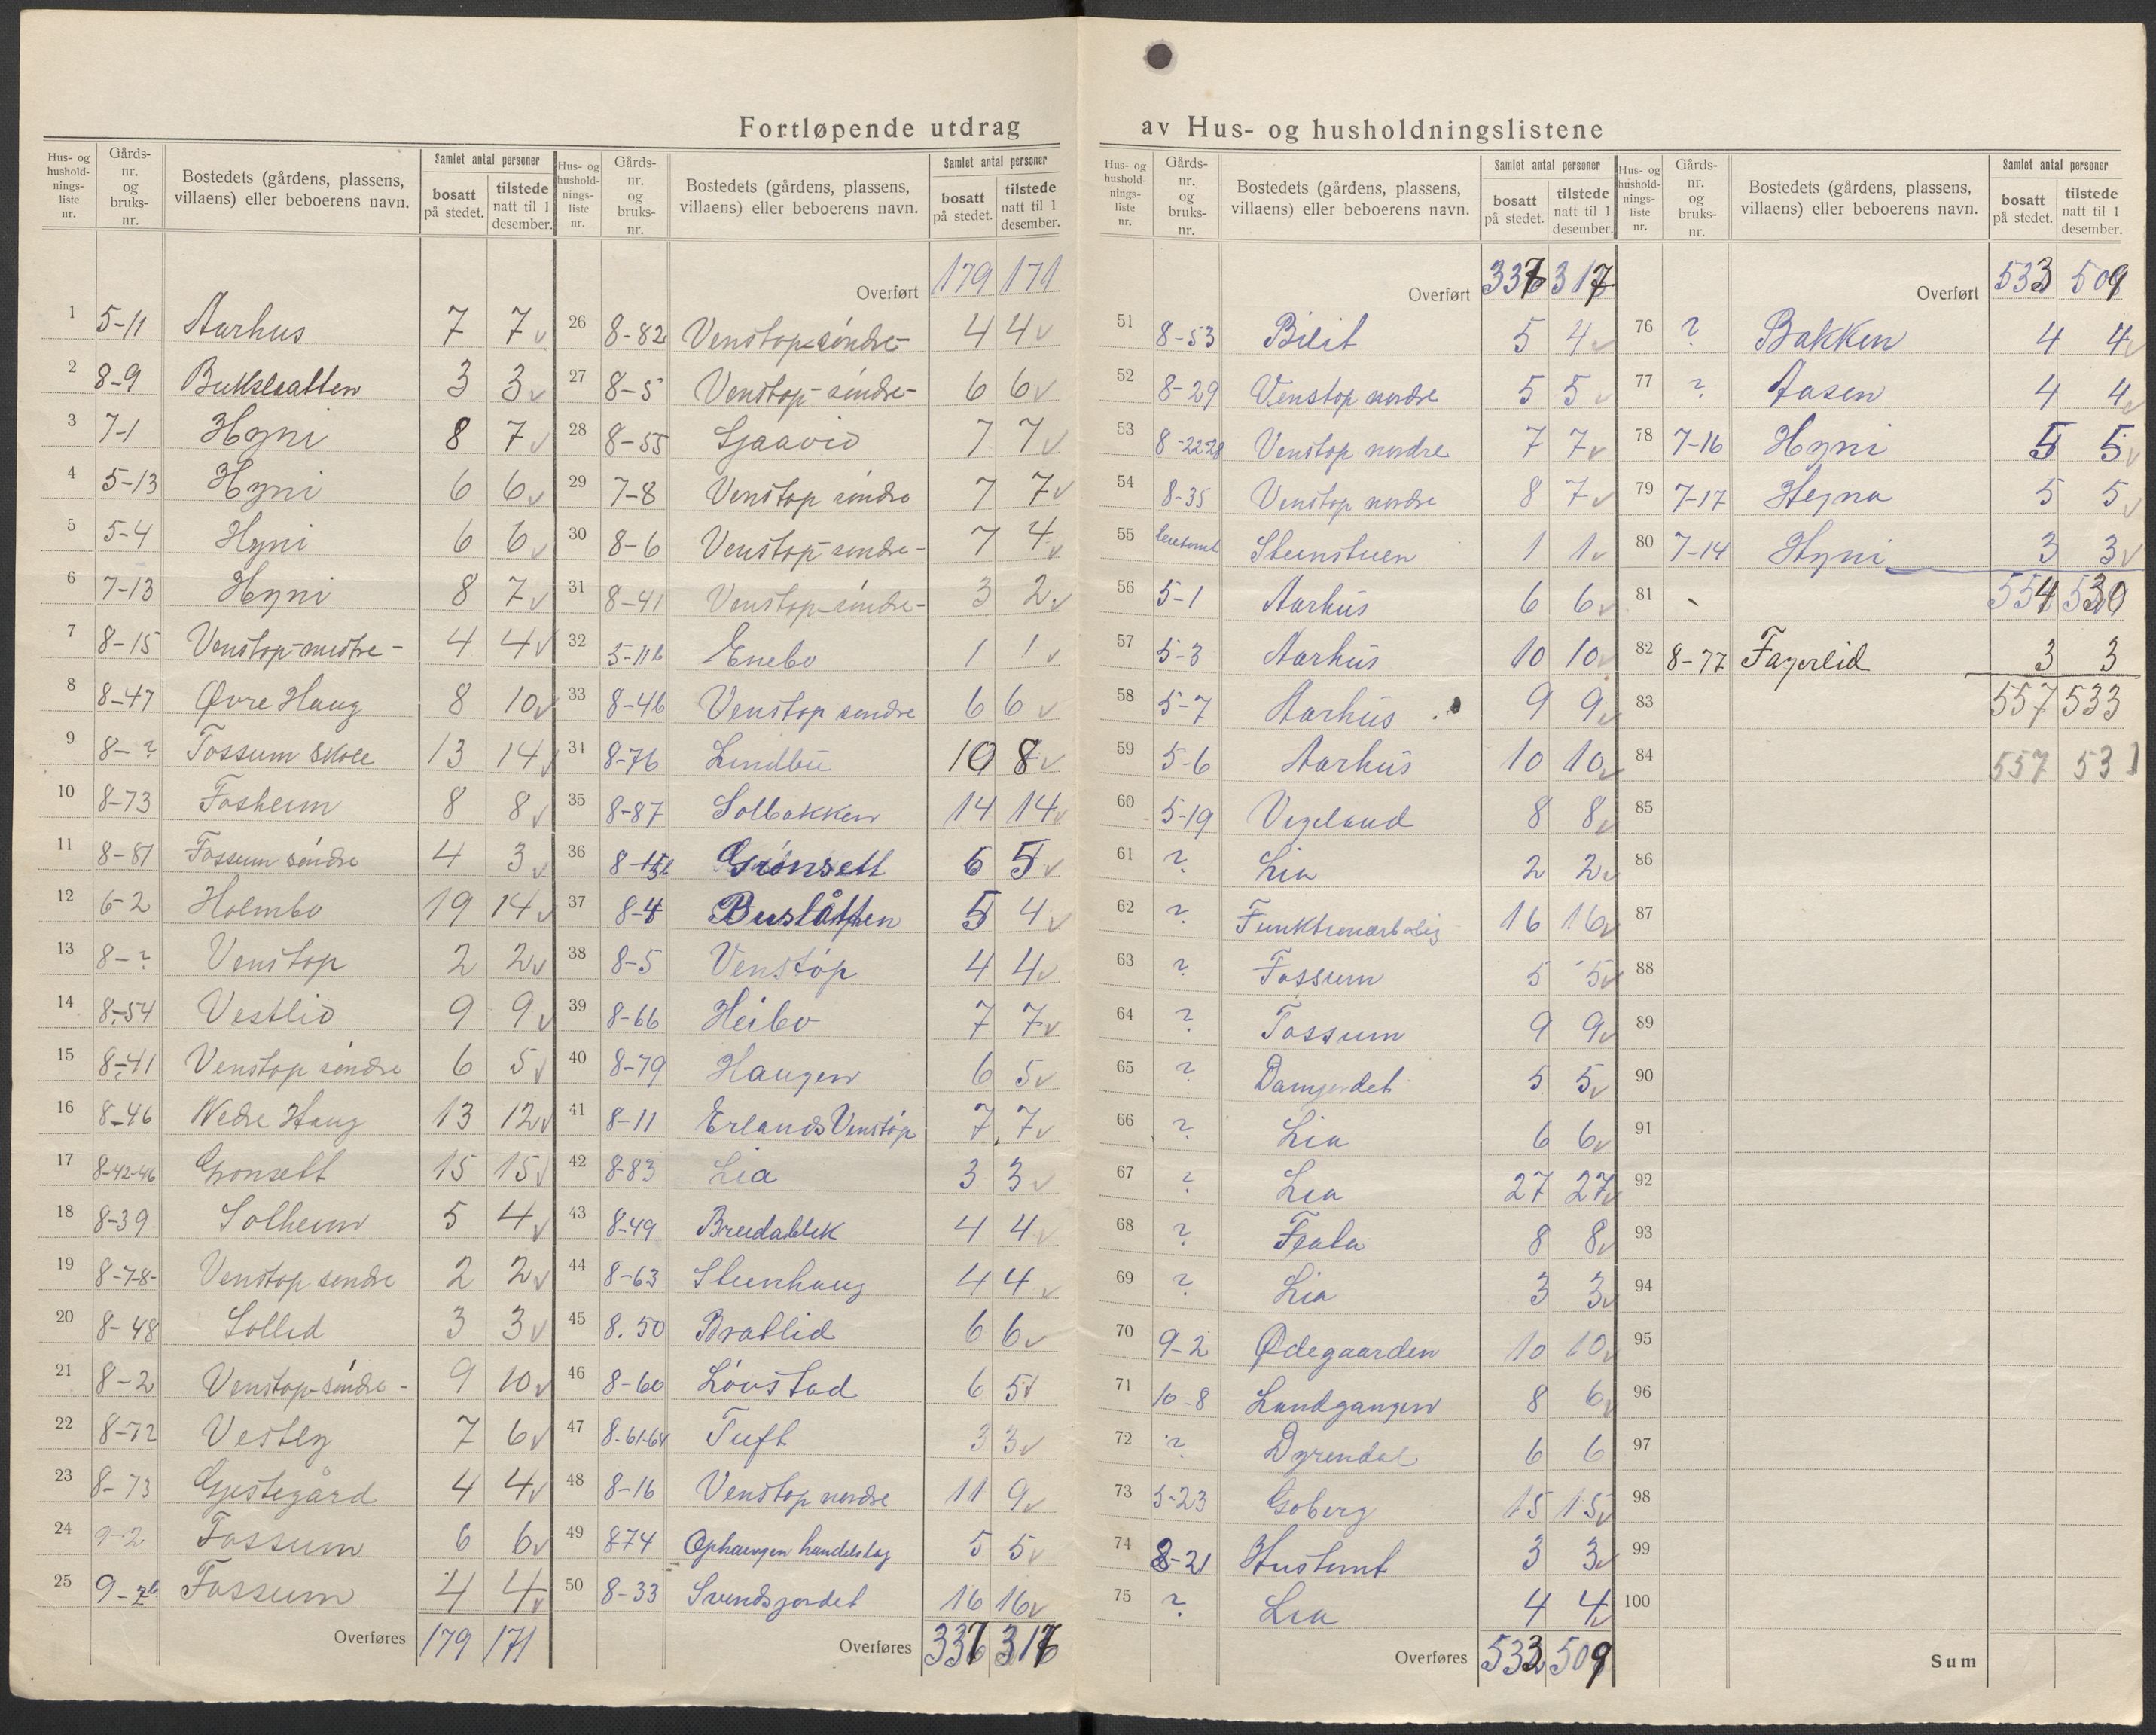 Fortløpende utdrag av Hus- og husholdningslistene
Hus- og husholdnings-liste nr. Gårds-nr. og bruks-nr. Bostedets (gårdens, plassens, villaens) eller beboerens navn. Samlet antal personer bosatt på stedet. tilstede natt til 1 desember.
1 5-11 Aarhus 7 7
2 8-9 Buksleatten 3 3
3 7-1 Hyni 8 7
4 5-13 Hyni 6 6
5 5-4 Hyni 6 6
6 7-13 Hyni 8 7
7 8-15 Venstop-mestre- 4 4
8 8-47 Øvre Haug 8 10
9 8-? Fossum skole 13 14
10 8-73 Fosheim 8 8
11 8-81 Fossum søndre 4 3
12 6-2 Holmbo 19 14
13 8-? Venstop 2 2
14 8-54 Vestlio 9 9
15 8-41 Venstop søndre 6 5
16 8-46 Nedre Haug 13 12
17 8-42-46 Gronsett 15 15
18 8-39 Solheim 5 4
19 8-7-8- Venstop søndre 2 2
20 8-48 Sollid 3 3
21 8-2 Venstop-søndre- 9 10
22 8-72 Vestly 7 6
23 8-73 Gjestegård 4 4
24 9-2 Fossum 6 6
25 9- Fossum 4 4
Overføres 179 171
Hus- og husholdnings-liste nr. Gårds-nr. og bruks-nr. Bostedets (gårdens, plassens, villaens) eller beboerens navn. Samlet antal personer bosatt på stedet. tilstede natt til 1 desember.
Overført 179 171
26 8-82 Venstop-søndre- 4 4
27 8-5 Venstop-søndre- 6 6
28 8-55 Sjaavio 7 7
29 7-8 Venstop søndre 7 7
30 8-6 Venstop-søndre- 7 4
31 8-41 Venstop-søndre- 3 2
32 5-11b Enebo 1 1
33 8-46 Venstop søndre 6 6
34 8-76 Lindbu 10 8
35 8-87 Solbakken 14 14
36 Grønsett 6 5
37 8-4 Buslåtten 5 4
38 8-5 Venstøp 4 4
39 8-66 Heibo 7 7
40 8-79 Haugen 6 5
41 8-11 Erlands Venstøp 7 7
42 8-83 Lia 3 3
43 8-49 Breidablik 4 4
44 8-63 Steinhaug 4 4
45 8.50 Bratlid 6 6
46 8-60 Lövstad 6 5
47 8-61-64 Tuft 3 3
48 8-16 Venstop nordre 11 9
49 874 Gphaugen handelslag 5 5
50 8-33 Svendsjordet 16 16
Overføres 337 317
Hus- og husholdnings-liste nr. Gårds-nr. og bruks-nr. Bostedets (gårdens, plassens, villaens) eller beboerens navn. Samlet antal personer bosatt på stedet. tilstede natt til 1 desember.
Overført 337 317
51 8-53 Bilit 5 4
52 8-29 Venstop nordre 5 5
53 8-22-28 Venstop nordre 7 7
54 8-35 Venstop nordre 8 7
55 Stenstuen 1 1
56 5-1 Aarhus 6 6
57 5-3 Aarhus 10 10
58 5-7 Aarhus 9 9
59 5-6 Aarhus 10 10
60 5-19 Vegeland 8 8
61 ? Lia 2 2
62 ? Funktionærbolig 16 16
63 ? Fossum 5 5
64 ? Fossum 9 9
65 ? Damjordet 5 5
66 ? Lia 6 6
67 ? Lia 27 27
68 ? Feala 8 8
69 ? Lia 3 3
70 9-2 Ødegaarden 10 10
71 10-8 Landgangen 8 6
72 ? Dyrendal 6 6
73 5-23 Goberg 15 15
74 8-21 Hustomt 3 3
75 ? Lia 4 4
Overføres 533 509
Hus- og husholdnings-liste nr. Gårds-nr. og bruks-nr. Bostedets (gårdens, plassens, villaens) eller beboerens navn. Samlet antal personer bosatt på stedet. tilstede natt til 1 desember.
Overført 533 509
76 ? Bakken 4 4
77 ? Aasen 4 4
78 7-16 Hyni 5 5
79 7-17 Hegna 5 5
80 7-14 Hyni 3 3
81 554 530
82 8-77 Fagerlid 3 3
83 557 533
84 557 531
85
86
87
88
89
90
91
92
93
94
95
96
97
98
99
100
Sum